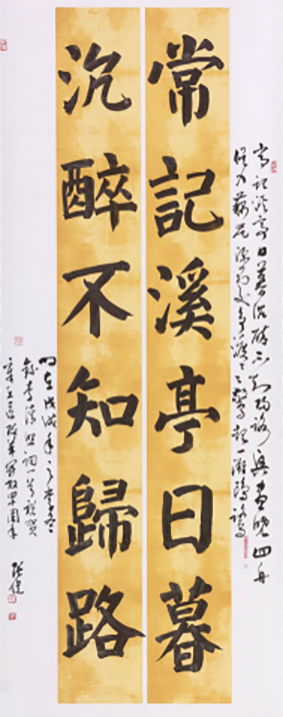 常記溪亭日暮沉醉不知歸路興盡晚回舟
誤入藕花深處爭渡〻〻驚起一灘鷗鷺
常記溪亭日暮
沉醉不知歸路
戊戌年
錄李清照詞